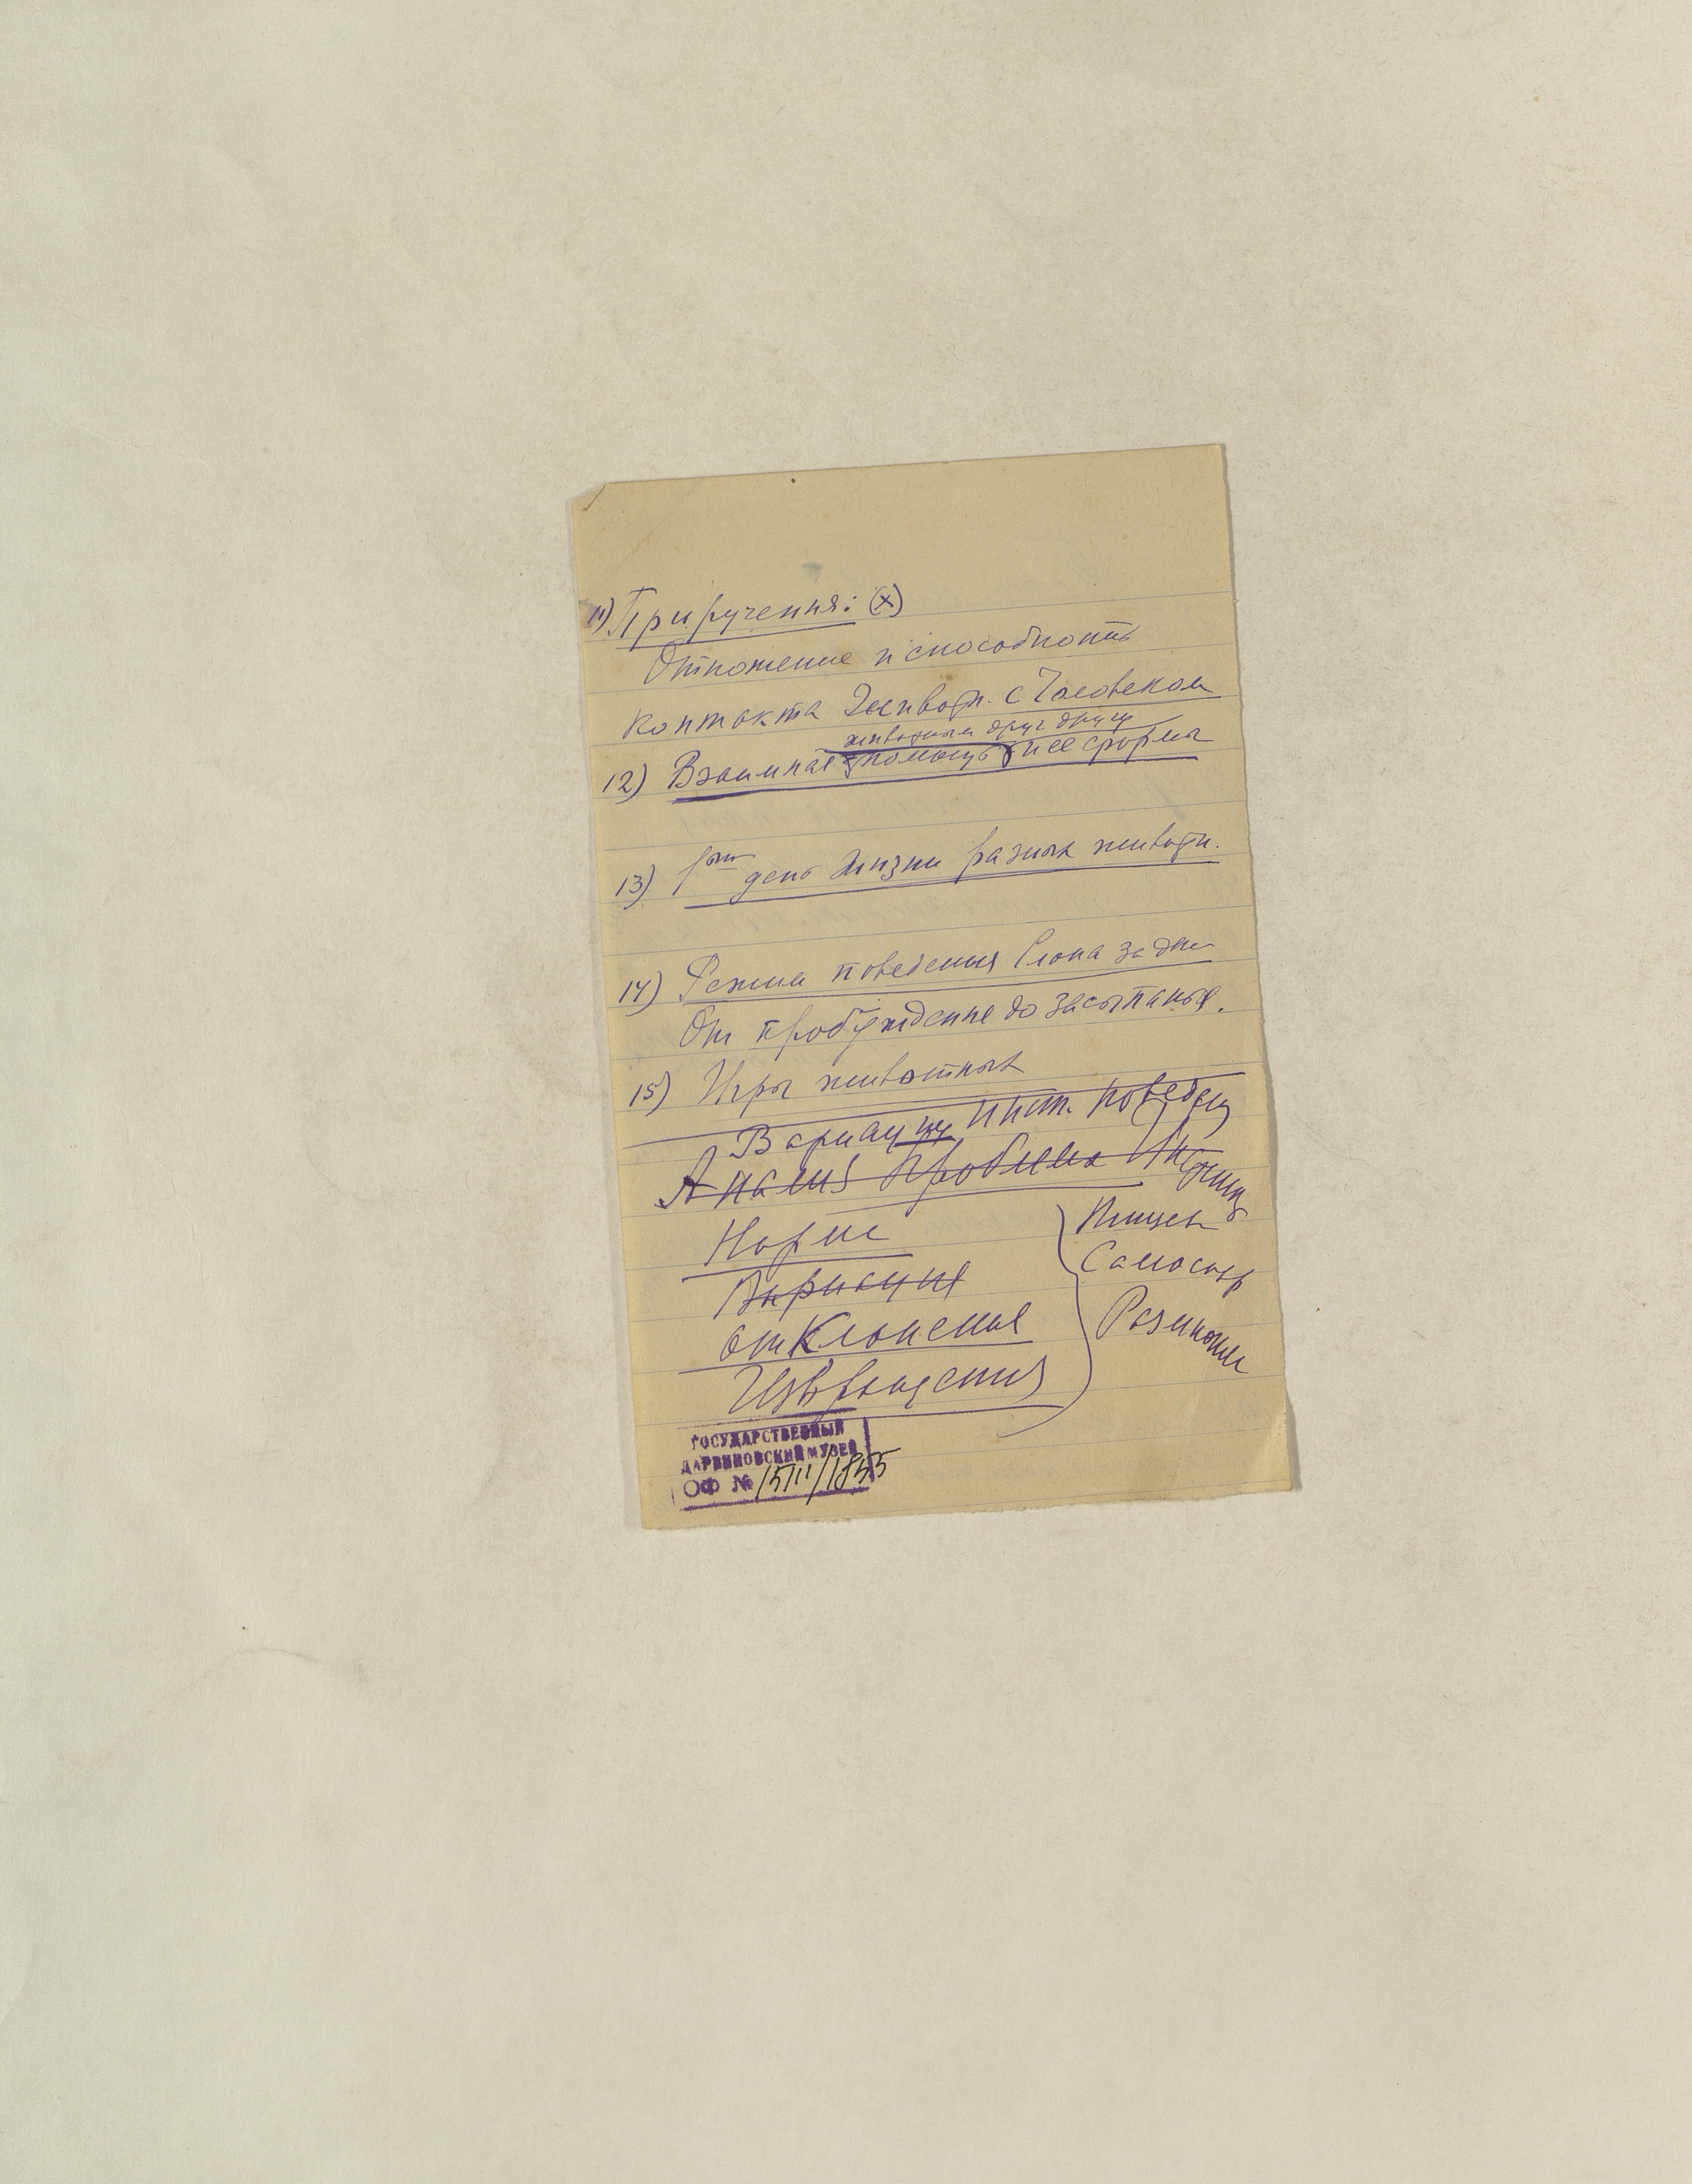 11) Приручения: (x)
Отношение и способность
контакта Животн. с Человеком
животными друг другу
12) Взаимная помощь и ее формы
13) 1ый день жизни разных животн.
14) Режим поведения Слона за день
От пробуждение до засыпанья.
15) Игры животных
Вариации инст. поведен
Анализ Проблема
Норма
Вариация
отклонения
Извращения
Пищев
Самосохр
Размнож
ГОСУДАРСТВЕННЫЙ
ДАРВИНОВСКИЙ МУЗЕЙ
ОФ №